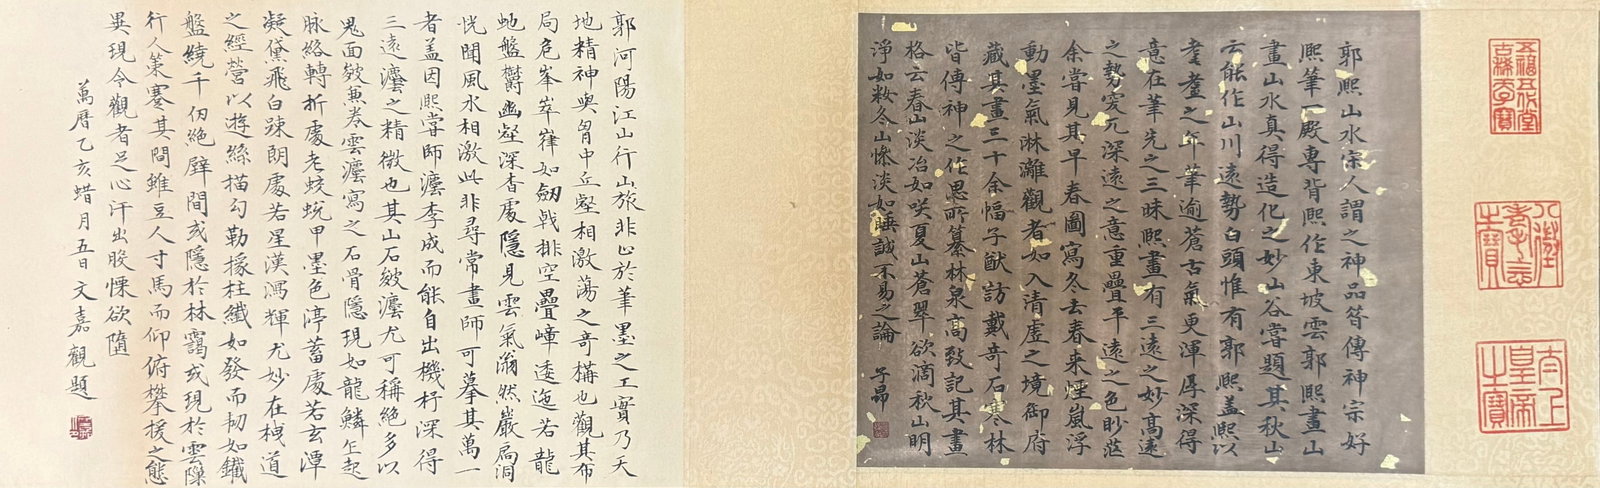 五福五代堂
古稀天子寶
八徵耄念
之寶
太上
皇帝
之寶
郭熙山水宗人謂之神品筍傳神宗好
熙筆一殿專背熙作東坡雲郭熙畫山
畫山水真得造化之妙山谷嘗題其秋山
云能作山川遠勢白頭惟有郭熙盖熙以
耄耋之年筆逾蒼古氣更渾厚深得
意在筆先之三昧熙畫有三遠之妙高遠
之勢突兀深遠之意重疊平遠之色眇茫
余嘗見其早春圖寫冬去春来煙嵐浮
動墨氣淋灕觀者如入清虛之境御府
藏其畫三十余幅子猷訪戴奇石寒林
皆傳神之作思所纂林泉高致記其畫
格云春山淡冶如咲夏山蒼翠欲滴秋山明
淨如妝冬山慘淡如睡誠不易之論 子昂
郭河陽江山行山旅非止於筆墨之工實乃天
地精神與胷中丘壑相激荡之奇構也觀其布
局危峯崒嵂如劒戟排空疊嶂逶迤若龍
虵盤欝幽壑深杳處隱見雲氣滃然巖扃洞
恍聞風水相激此非尋常畫師可摹其萬一
者盖因熙嘗師灋李成而能自出機杼深得
三遠灋之精微也其山石皴灋尤可稱絕多以
鬼面皴兼卷雲灋寫之石骨隱現如龍鱗乍起
脉絡轉折處老蛟蛻甲墨色渟蓄處若玄潭
凝黛飛白踈朗處若星漢瀉輝尤妙在栈道
之經營以遊絲描勾勒掾柱纖如發而韧如鐵
盤繞千仞絕壁間或隱於林靄或現於雲隙
行人策蹇其間雖豆人寸馬而仰俯攀援之態
畢現令觀者足心汗出股慄欲隨
萬曆乙亥蜡月五日文嘉觀題